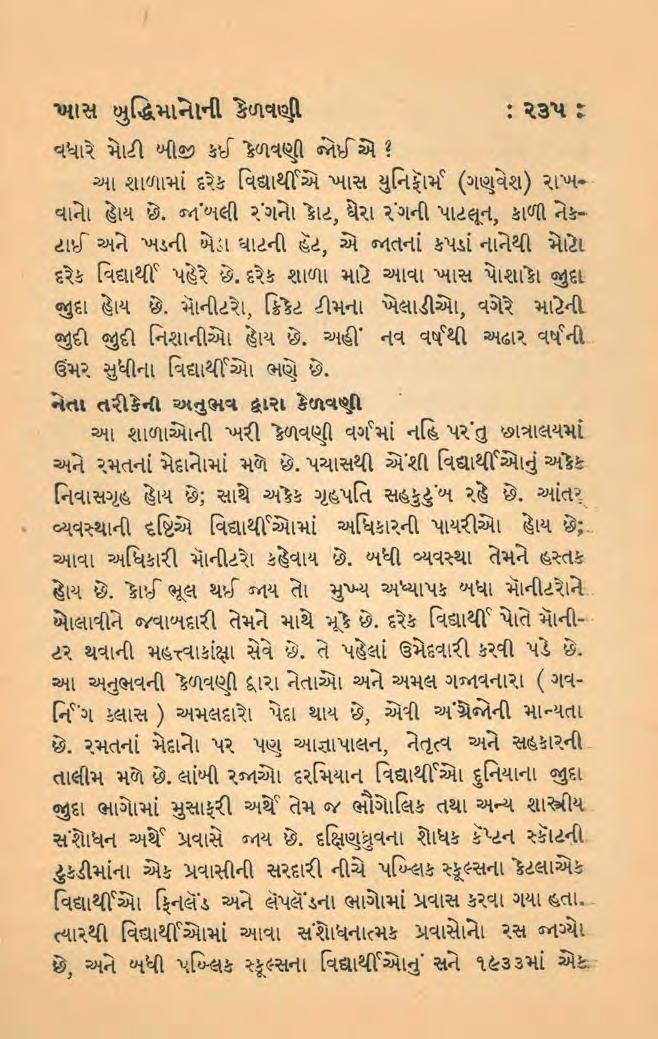 ખાસ બુદ્ધિમાનોની કેળવણી : ૨૩૫ :
વધારે મોટી બીજી કઈ કેળવણી જોઈએ ?
આ શાળામાં દરેક વિદ્યાર્થીએ ખાસ યુનિફૉર્મ (ગણુવેશ) રાખ-
વાનો હોય છે. જાંબલી રંગનો કોટ, ઘેરા રંગની પાટલૂન, કાળી નેક-
ટાઈ અને ખડની બેઠા ઘાટની હૅટ, એ જાતનાં કપડાં નાનેથી મોટો
દરેક વિદ્યાર્થી પહેરે છે. દરેક શાળા માટે આવા ખાસ પોશાકો જુદા
જુદા હોય છે. મૉનીટરો, ક્રિકેટ ટીમના ખેલાડીઓ, વગેરે માટેની
જુદી જુદી નિશાનીઓ હોય છે. અહીં નવ વર્ષથી અઢાર વર્ષની
ઉંમર સુધીના વિદ્યાર્થીઓ ભણે છે.
નેતા તરીકેની અનુભવ દ્વારા કેળવણી
આ શાળાઓની ખરી કેળવણી વર્ગમાં નહિ પરંતુ છાત્રાલયમાં
અને રમતનાં મેદાનોમાં મળે છે. પચાસથી એંશી વિદ્યાર્થીઓનું અકેક
નિવાસગૃહ હોય છે; સાથે અકેક ગૃહપતિ સહકુટુંબ રહે છે. આંતર
વ્યવસ્થાની દૃષ્ટિએ વિદ્યાર્થીઓમાં અધિકારની પાયરીઓ હોય છે;
આવા અધિકારી મૉનીટરો કહેવાય છે. બધી વ્યવસ્થા તેમને હસ્તક
હોય છે. કોઈ ભૂલ થઈ જાય તો મુખ્ય અધ્યાપક બધા મૉનીટરોને
બોલાવીને જવાબદારી તેમને માથે મૂકે છે. દરેક વિદ્યાર્થી પોતે મૉની-
ટર થવાની મહત્ત્વાકાંક્ષા સેવે છે. તે પહેલાં ઉમેદવારી કરવી પડે છે.
આ અનુભવની કેળવણી દ્વારા નેતાઓ અને અમલ ગજાવનારા ( ગવ-
ર્નિંગ ક્લાસ ) અમલદારો પેદા થાય છે, એવી અંગ્રેજોની માન્યતા
છે. રમતનાં મેદાનો પર પણ આજ્ઞાપાલન, નેતૃત્વ અને સહકારની
તાલીમ મળે છે. લાંબી રજાઓ દરમિયાન વિદ્યાર્થીઓ દુનિયાના જુદા
જુદા ભાગોમાં મુસાફરી અર્થે તેમ જ ભૌગોલિક તથા અન્ય શાસ્ત્રીય
સંશોધન અર્થે પ્રવાસે જાય છે. દક્ષિણધ્રુવના શોધક કૅપ્ટન સ્કૉટની
ટુકડીમાંના એક પ્રવાસીની સરદારી નીચે પબ્લિક સ્કૂલ્સના કેટલાએક
વિદ્યાર્થીઓ ફિનલૅંડ અને લૅપલૅંડના ભાગોમાં પ્રવાસ કરવા ગયા હતા.
ત્યારથી વિદ્યાર્થીઓમાં આવા સંશોધનાત્મક પ્રવાસોનો રસ જાગ્યો
છે, અને બધી પબ્લિક સ્કૂલ્સના વિદ્યાર્થીઓનું સને ૧૯૩૩માં એક